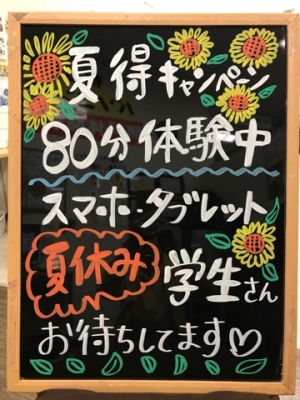 夏得キャンペーン
80分体験中
スマホ・タブレット
夏休み 学生さん
お待ちしてます♡